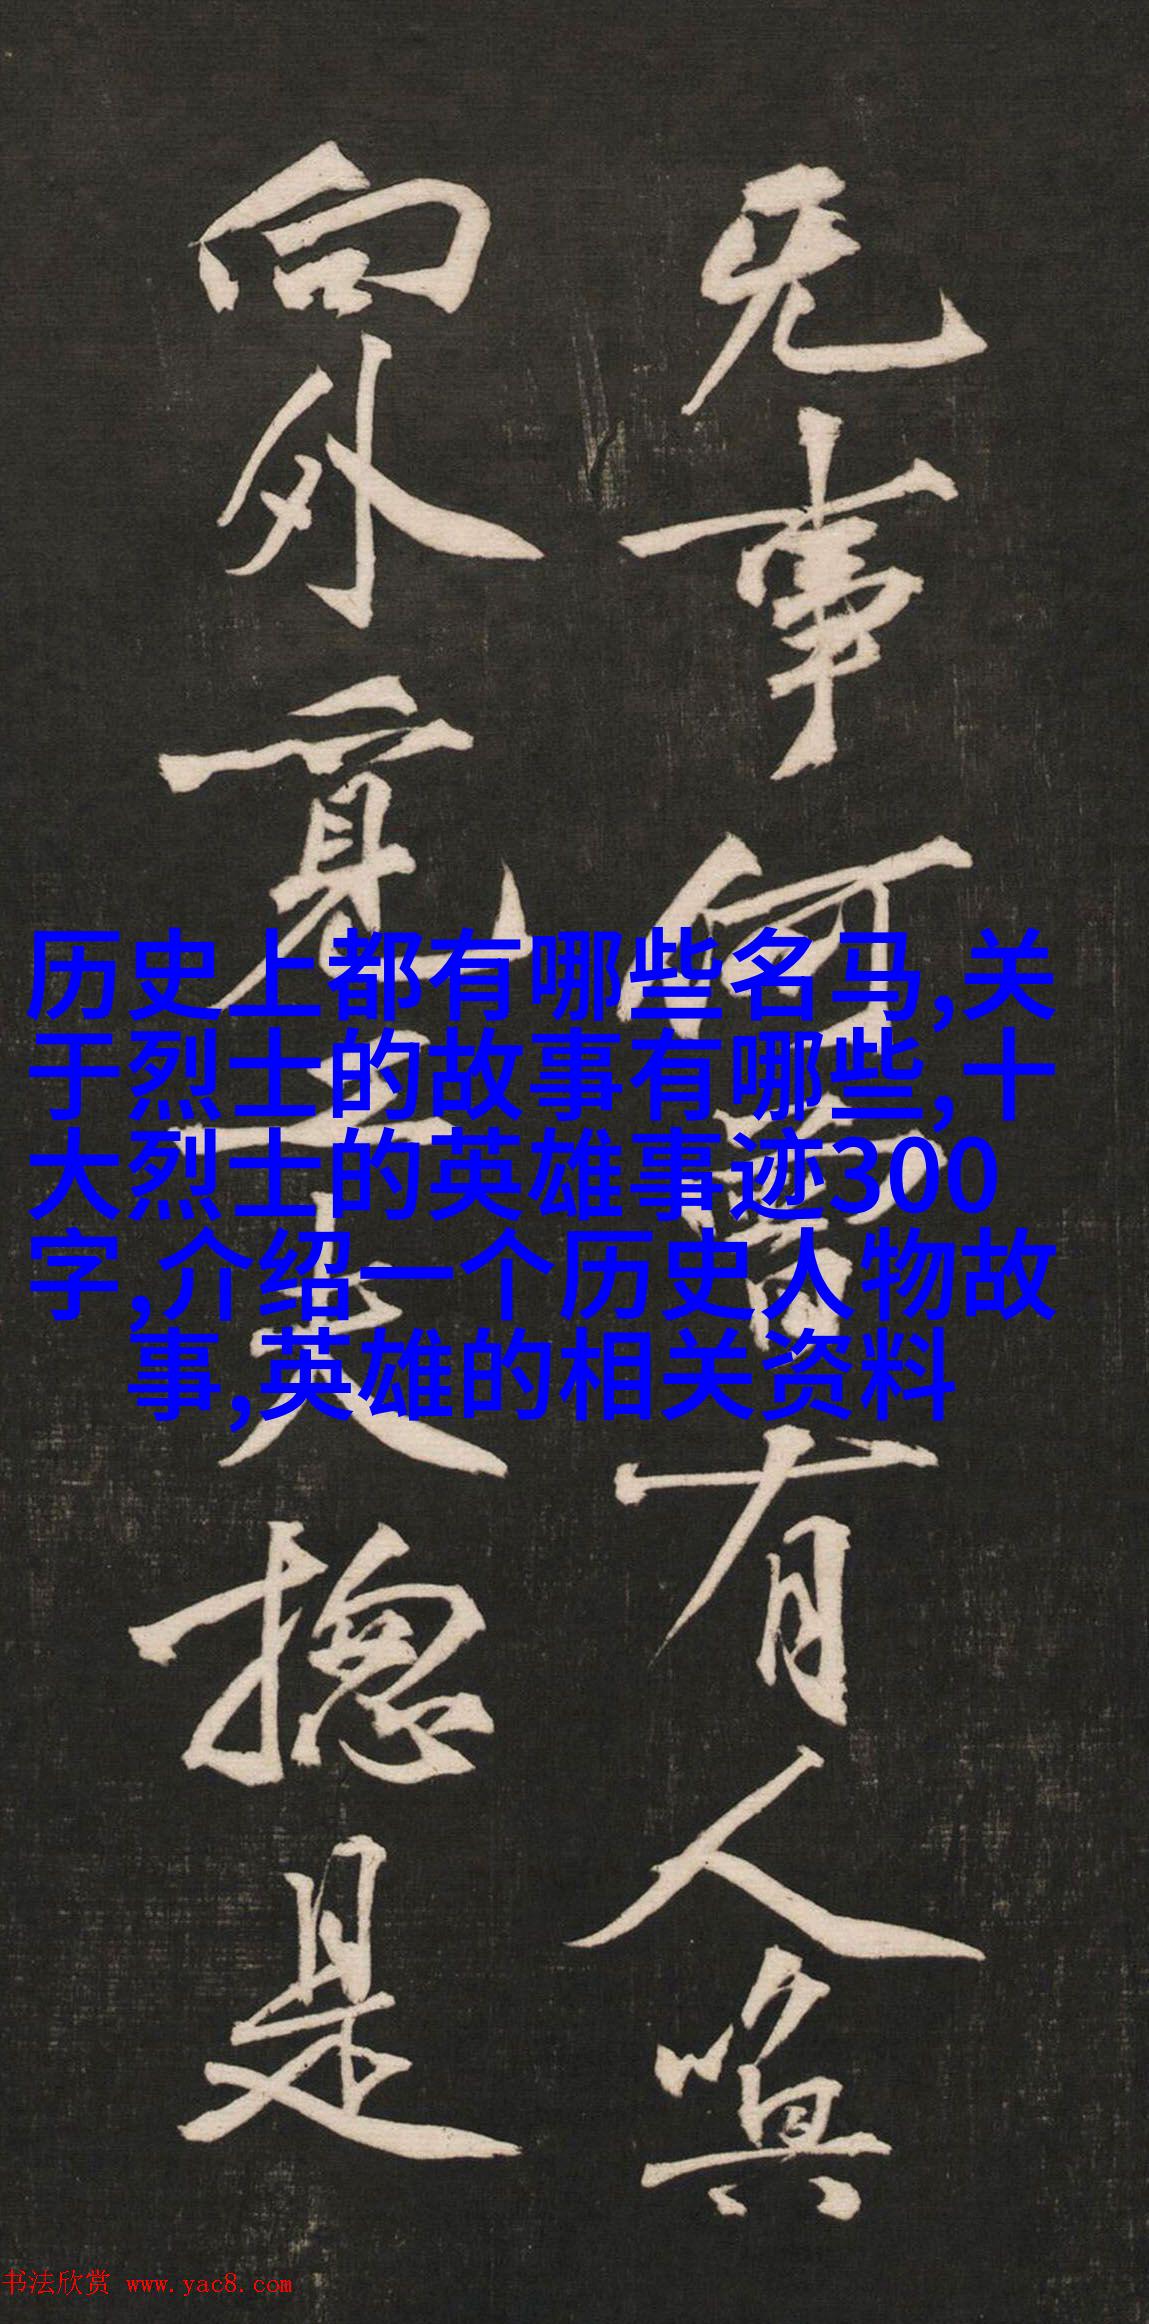 无事何曾有人嗔
向外觅工夫捴是
历史上都有哪些名马,关
于烈士的故事有哪些,十
大烈士的英雄事迹300
字,介绍一个历史人物故
事,英雄的相关资料
书法欣赏 www.yac8.com